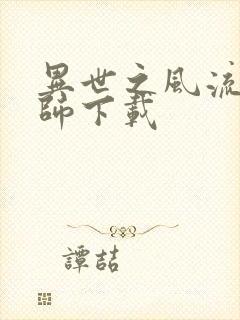 異世之風流
師下載
譚喆